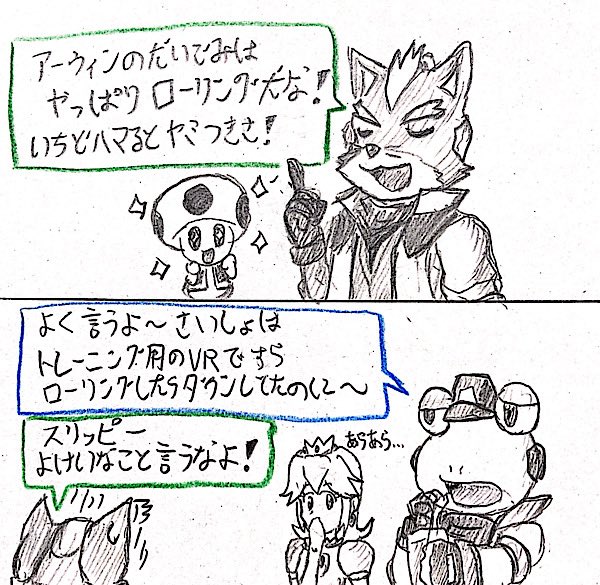 アーウィンのだいごみは
やっぱりローリングだな!
いちどハマるとヤミつきさ!
よく言うよ〜さいしょは
トレーニング用のVRですら
ローリングしたらダウンしてたのに〜
スリッピー
よけいなこと言うなよ!
あらあら…